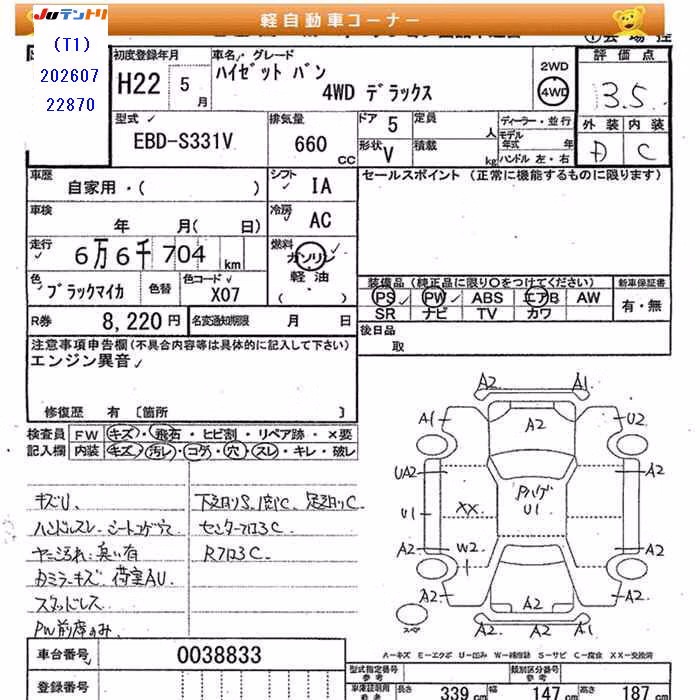 Juテントリ
軽自動車コーナー
(T1)
202607
22870
初度登録年月
H22 5月
車名 グレード
ハイゼット バン
4WD デラックス
2WD
4WD
評価点
3.5
外装 内装
D C
型式
EBD-S331V
排気量
660 cc
ドア 5
形状 V
定員 人
積載 kg
ディーラー・並行
モデル年式 年
ハンドル 左・右
車歴
自家用・( )
シフト
IA
セールスポイント (正常に機能するものに限ります)
車検
年 月( 日)
冷房
AC
走行
6万6千704 km
燃料
ガソリン
軽油
( ・ )
色
ブラックマイカ
色替
色コード
X07
装備品 (純正品に限り○をつけてください)
新車保証書
PS PW ABS エアB AW
SR ナビ TV カワ
有・無
R券 8,220円
名変通知期限 月 日
後日品
取
注意事項申告欄 (不具合内容等は具体的に記入して下さい)
エンジン異音
修復歴 有 〔箇所 〕
検査員記入欄
FW キズ・飛石・ヒビ割・リペア跡・×要
内装 キズ・汚レ・コゲ・穴・スレ・キレ・破レ
キズU、
ハンドルスレ シートコゲ穴
ヤニ汚れ・臭い有
カミラーキズ 荷室AU.
スタッドレス
PW前席のみ.
下廻りS、腐C、足廻りC
センターフロアC
RフロアC
A2 A1
A1 A2 U2
UA2 A2
U1 XX PハゲU1
A2 W2 A2
A2 A2 A2
A2 A2 A2
スペア
A―キズ E―エクボ U―凹み W―補修跡 S―サビ C―腐食 XX―交換済
車台番号 0038833
登録番号
型式指定番号 参考
類別区分番号 参考
車庫証明用 参考
長さ 339 cm 幅 147 cm 高さ 187 cm